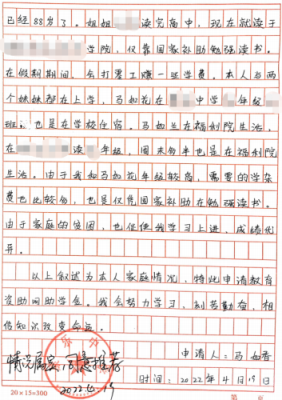 已经88岁了。姐姐 读完高中，现在就读于
学院，仅靠国家补助勉强读书。
在假期期间，会打零工赚一些学费。本人与两
个妹妹都在上学，马如花在 中学 年级
班。也是在学校住宿。马如兰在福利院生活，
在 读 年级，周末勿半也是在福利院
生活。由于我如马如花年级较高，需要的学杂
费也比较多，也是仅凭国家补助在勉强读书。
由于家庭的贫困，也促使我学习上进，成绩优
异。
以上叙述为本人家庭情况，特此申请教育
资助同助学金。我会努力学习，刻苦勤奋，相
信知识改变命运。
情况属实 同意推荐
申请人：马如香
2022.4.19
时间：2022年4月19日
20×15=300
第 页